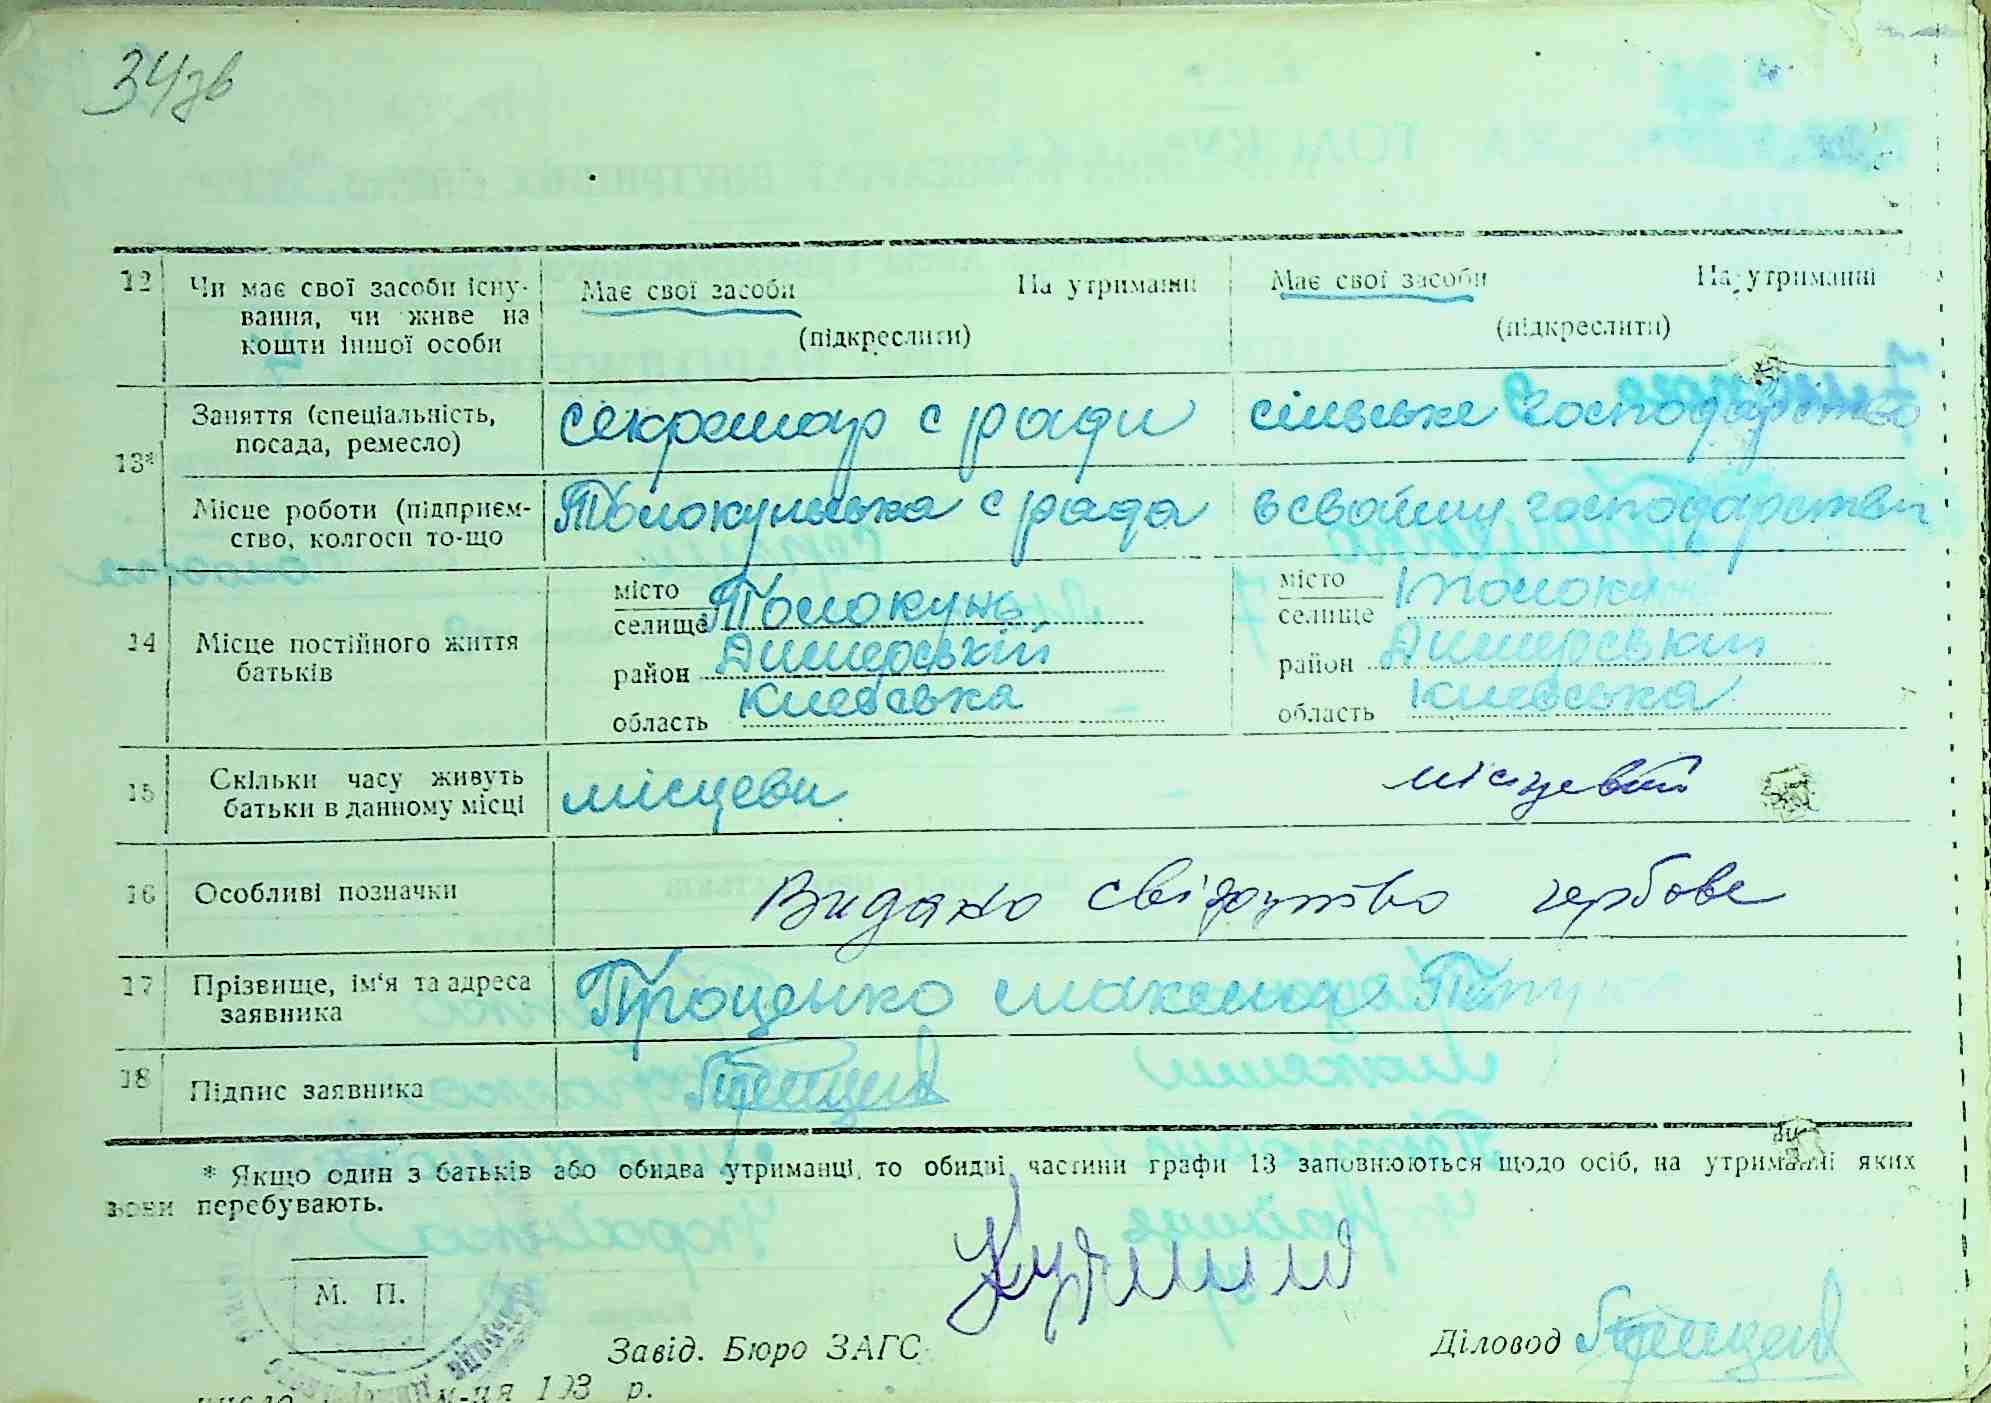 34зв
12 Чи має свої засоби існу- Має свої засоби На утриманні Має свої засоби На утриманні
вання, чи живе на (підкреслити) (підкреслити)
кошти іншої особи
13* Заняття (спеціальність, секретар с ради сільське господарство
посада, ремесло)
Місце роботи (підприєм- Толокунська с рада в свойму господарстви
ство, колгосп то-що
14 Місце постійного життя місто Толокунь місто Толокунь
батьків селище селище
район Димерський район Димерський
область Киевська область Киевська
15 Скільки часу живуть місцеви місцевий
батьки в данному місці
16 Особливі позначки Видано свідоцтво гербове
17 Прізвище, ім'я та адреса Проценко
заявника
18 Підпис заявника
* Якщо один з батьків або обидва утриманці, то обидві частини графи 13 заповнюються щодо осіб, на утриманні яких
вони перебувають.
М. П.
Завід. Бюро ЗАГС Діловод
число м-ця 193 р.